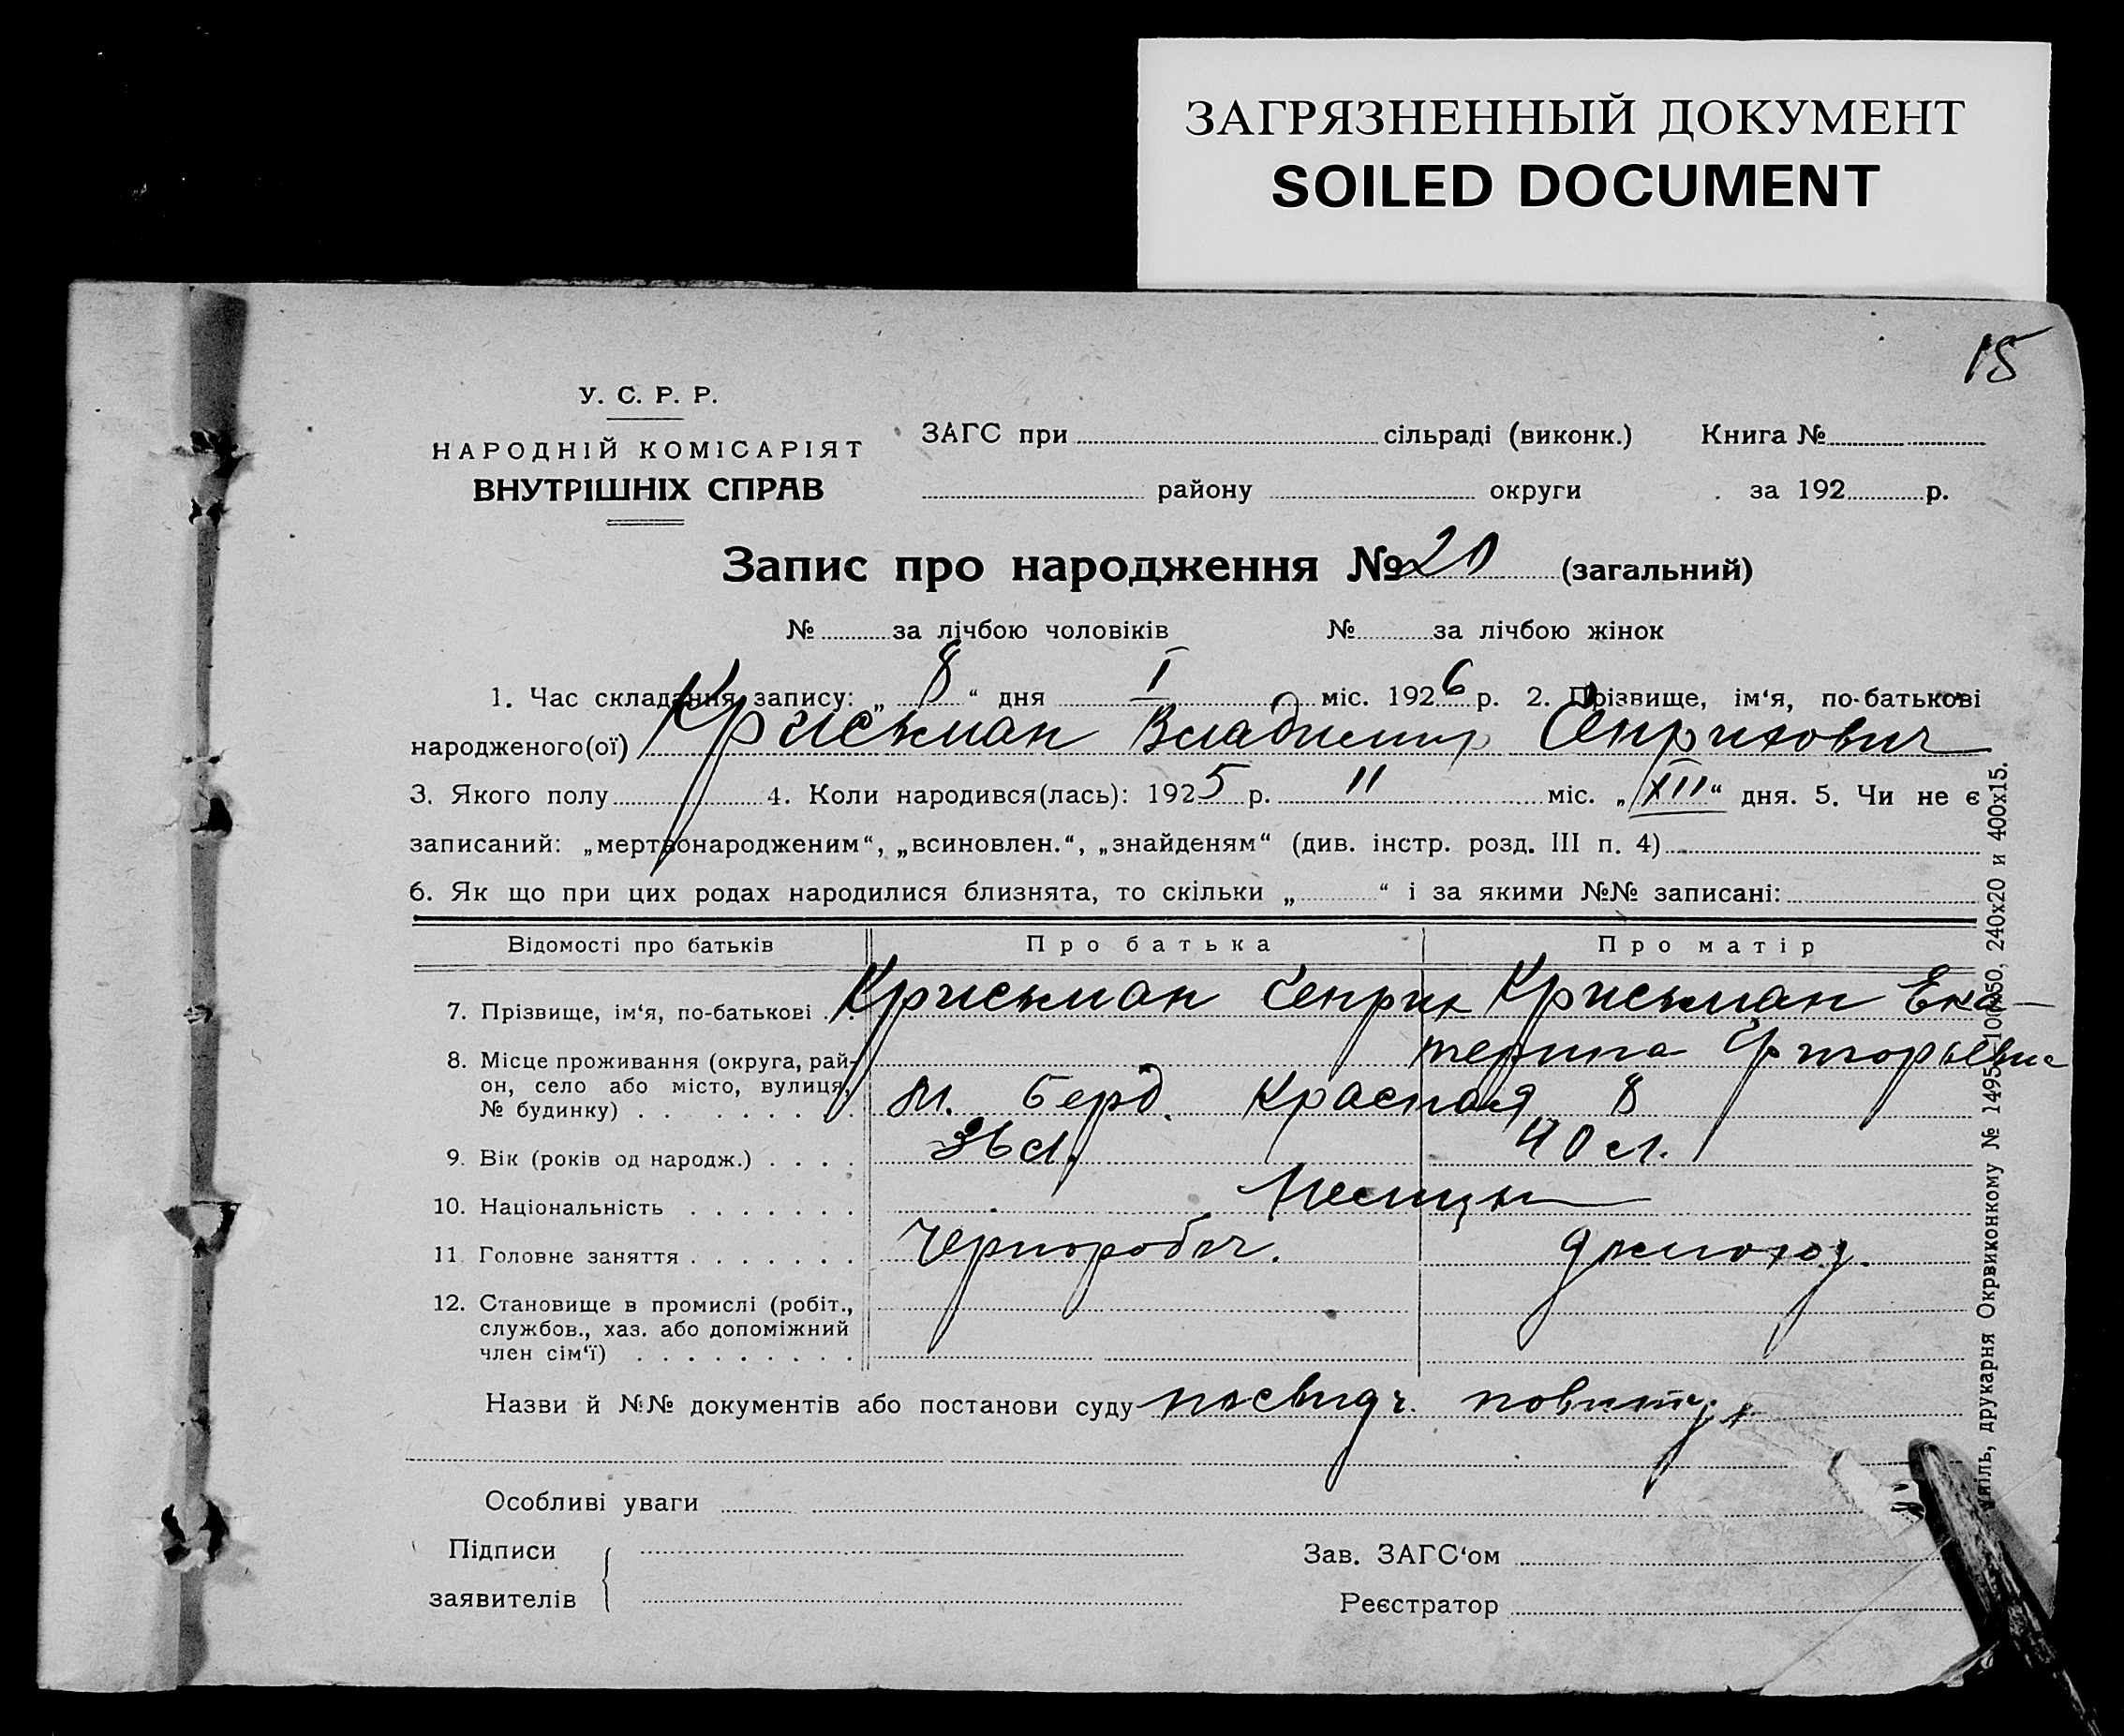 ЗАГРЯЗНЕННЫЙ ДОКУМЕНТ
SOILED DOCUMENT
15
У. С. Р. Р.
НАРОДНІЙ КОМІСАРІЯТ
ВНУТРІШНІХ СПРАВ
ЗАГС при сільраді (виконк.) Книга №
району округи за 192 р.
Запис про народження № 20 (загальний)
№ за лічбою чоловіків № за лічбою жінок
1. Час складання запису: „ 8 “ дня I міс. 1926 р. 2. Прізвище, ім‘я, по-батькові
народженого(ої) Крисьман Владимир Генрихович
3. Якого полу 4. Коли народився(лась): 1925 р. 11 міс. „ XII “ дня. 5. Чи не є
записаний: „мертвонародженим“, „всиновлен.“, „знайденям“ (див. інстр. розд. III п. 4)
6. Як що при цих родах народилися близнята, то скільки „ “ і за якими №№ записані:
Відомості про батьків Про батька Про матір
7. Прізвище, ім‘я, по-батькові . . Крисьман Генрих Крисьман Ека-
терина
8. Місце проживання (округа, рай-
он, село або місто, вулиця,
№ будинку) . . . . . . . . М. Берд. Красная 8
9. Вік (років од народж.) . . . . 36 л. 40 л.
10. Національність . . . . . . . Немцы
11. Головне заняття . . . . . . . Чернороб.
12. Становище в промислі (робіт.,
службов., хаз. або допоміжний
член сім‘ї) . . . . . . . . .
Назви й №№ документів або постанови суду посвидч. повит.
Особливі уваги
Підписи
заявителів
Зав. ЗАГС‘ом
Реєстратор
друкарня Окрвиконкому № 1495-100х50, 240х20 и 400х15.